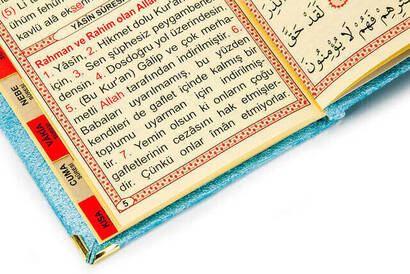 kavlü alâ ekse
YÂSİN SÛRESİ
Rahman ve Rahim olan Allah
1. Yâsin, 2. Hikmet dolu Kur'an
3. Sen şüphesiz peygamberler
densin. 4. Dosdoğru yol üzerindesin.
5. (Bu Kur'an) Gâlip ve çok merha
metli Allah tarafından indirilmiştir. 6.
Babaları uyarılmamış, bu yüzden
kendileri de gaflet içinde kalmış bir
toplumu uyarman için indirilmiş-
tir. 7. Yemin olsun ki onların çoğu
gafletlerinin cezasını hak etmiştir
dir. Çünkü onlar îmân etmiyorlar.
5
NEBE
SÛRESİ
VÂKIA
CUMA
SÛRESİ
KISA
فَهُمْ لَا يُؤْمِنُونَ